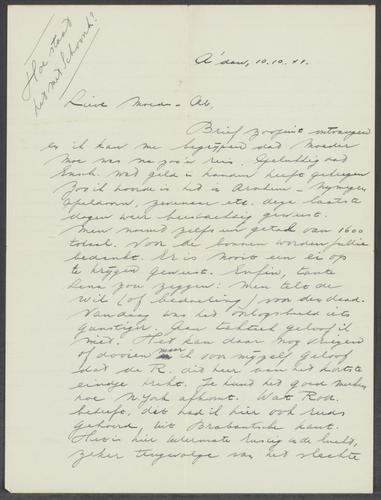 Hoe staat
het met Schoonh?
A'dam, 10.10.41.
Lieve Moeder - Ab,
Brief zoojuist ontvangen
en ik kan me begrijpen dat Moeder
moe was na zoo'n reis. Gelukkig dat
wat geld in handen heeft gekregen
Zoo ik hoorde is het in Arnhem - Nijmegen
Apeldoorn, Zevenaar etc. deze laatste
dagen weer geweest.
Men noemt zelfs een getal van 1600
totaal. Voor de bonnen worden jullie
bedankt. Er is nooit een ei op
te krijgen geweest. Enfin, tante
Lena zou zeggen: Men telt de
wil (of bedoeling) voor den daad.
Vandaag was het oorlogsbeeld iets
gunstiger. Aan tactiek geloof ik
niet. Het kan daar nog vriezen
of dooien maar ik voor mijzelf geloof
dat de R. dit keer aan het kortste
eindje trekt. Je kunt het goed merken
hoe N. York afkomt. Wat Rott.
betreft, dit had ik hier ook reeds
gehoord, uit Brabantsche kant.
Het is hier uitermate rustig in de lucht,
zeker tengevolge van het slechte